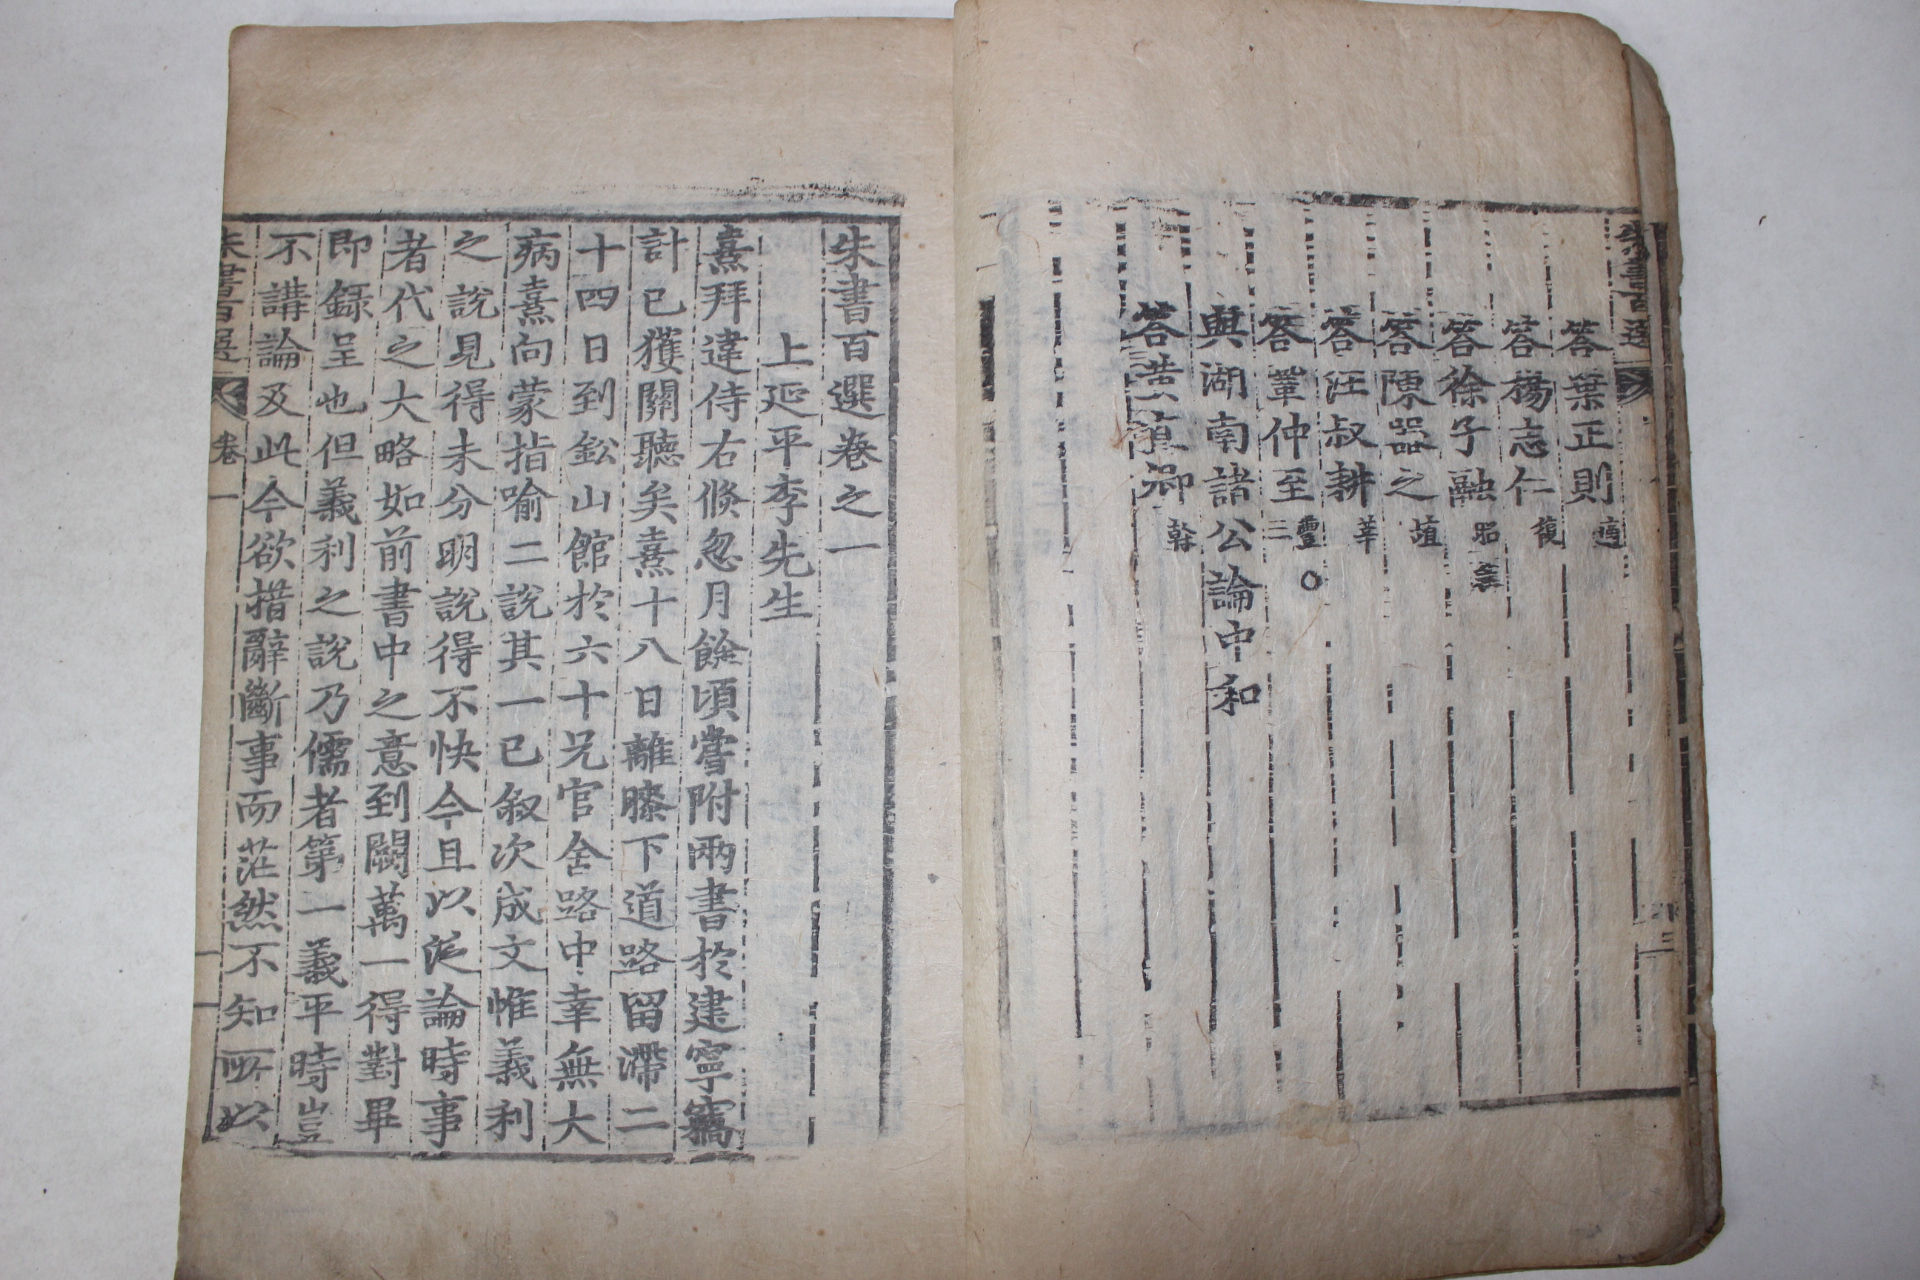 朱書百選
答葉正則 適
答楊志仁 復
答徐子融 昭然
答陳器之 埴
答汪叔耕 莘
答鞏仲至 豐○三
與湖南諸公論中和
答黃直卿 榦
朱書百選卷之一
上延平李先生
熹拜違侍右倏忽月餘頃嘗附兩書於建寧竊
計已獲關聽矣熹十八日離膝下道路留滯二
十四日到鈆山館於六十兄官舍路中幸無大
病熹向蒙指喻二說其一已敍次成文惟義利
之說見得未分明說得不快今且以泛論時事
者代之大略如前書中之意到闕萬一得對畢
即錄呈也但義利之說乃儒者第一義平時豈
不講論及此今欲措辭斷事而茫然不知所以
朱書百選 卷一